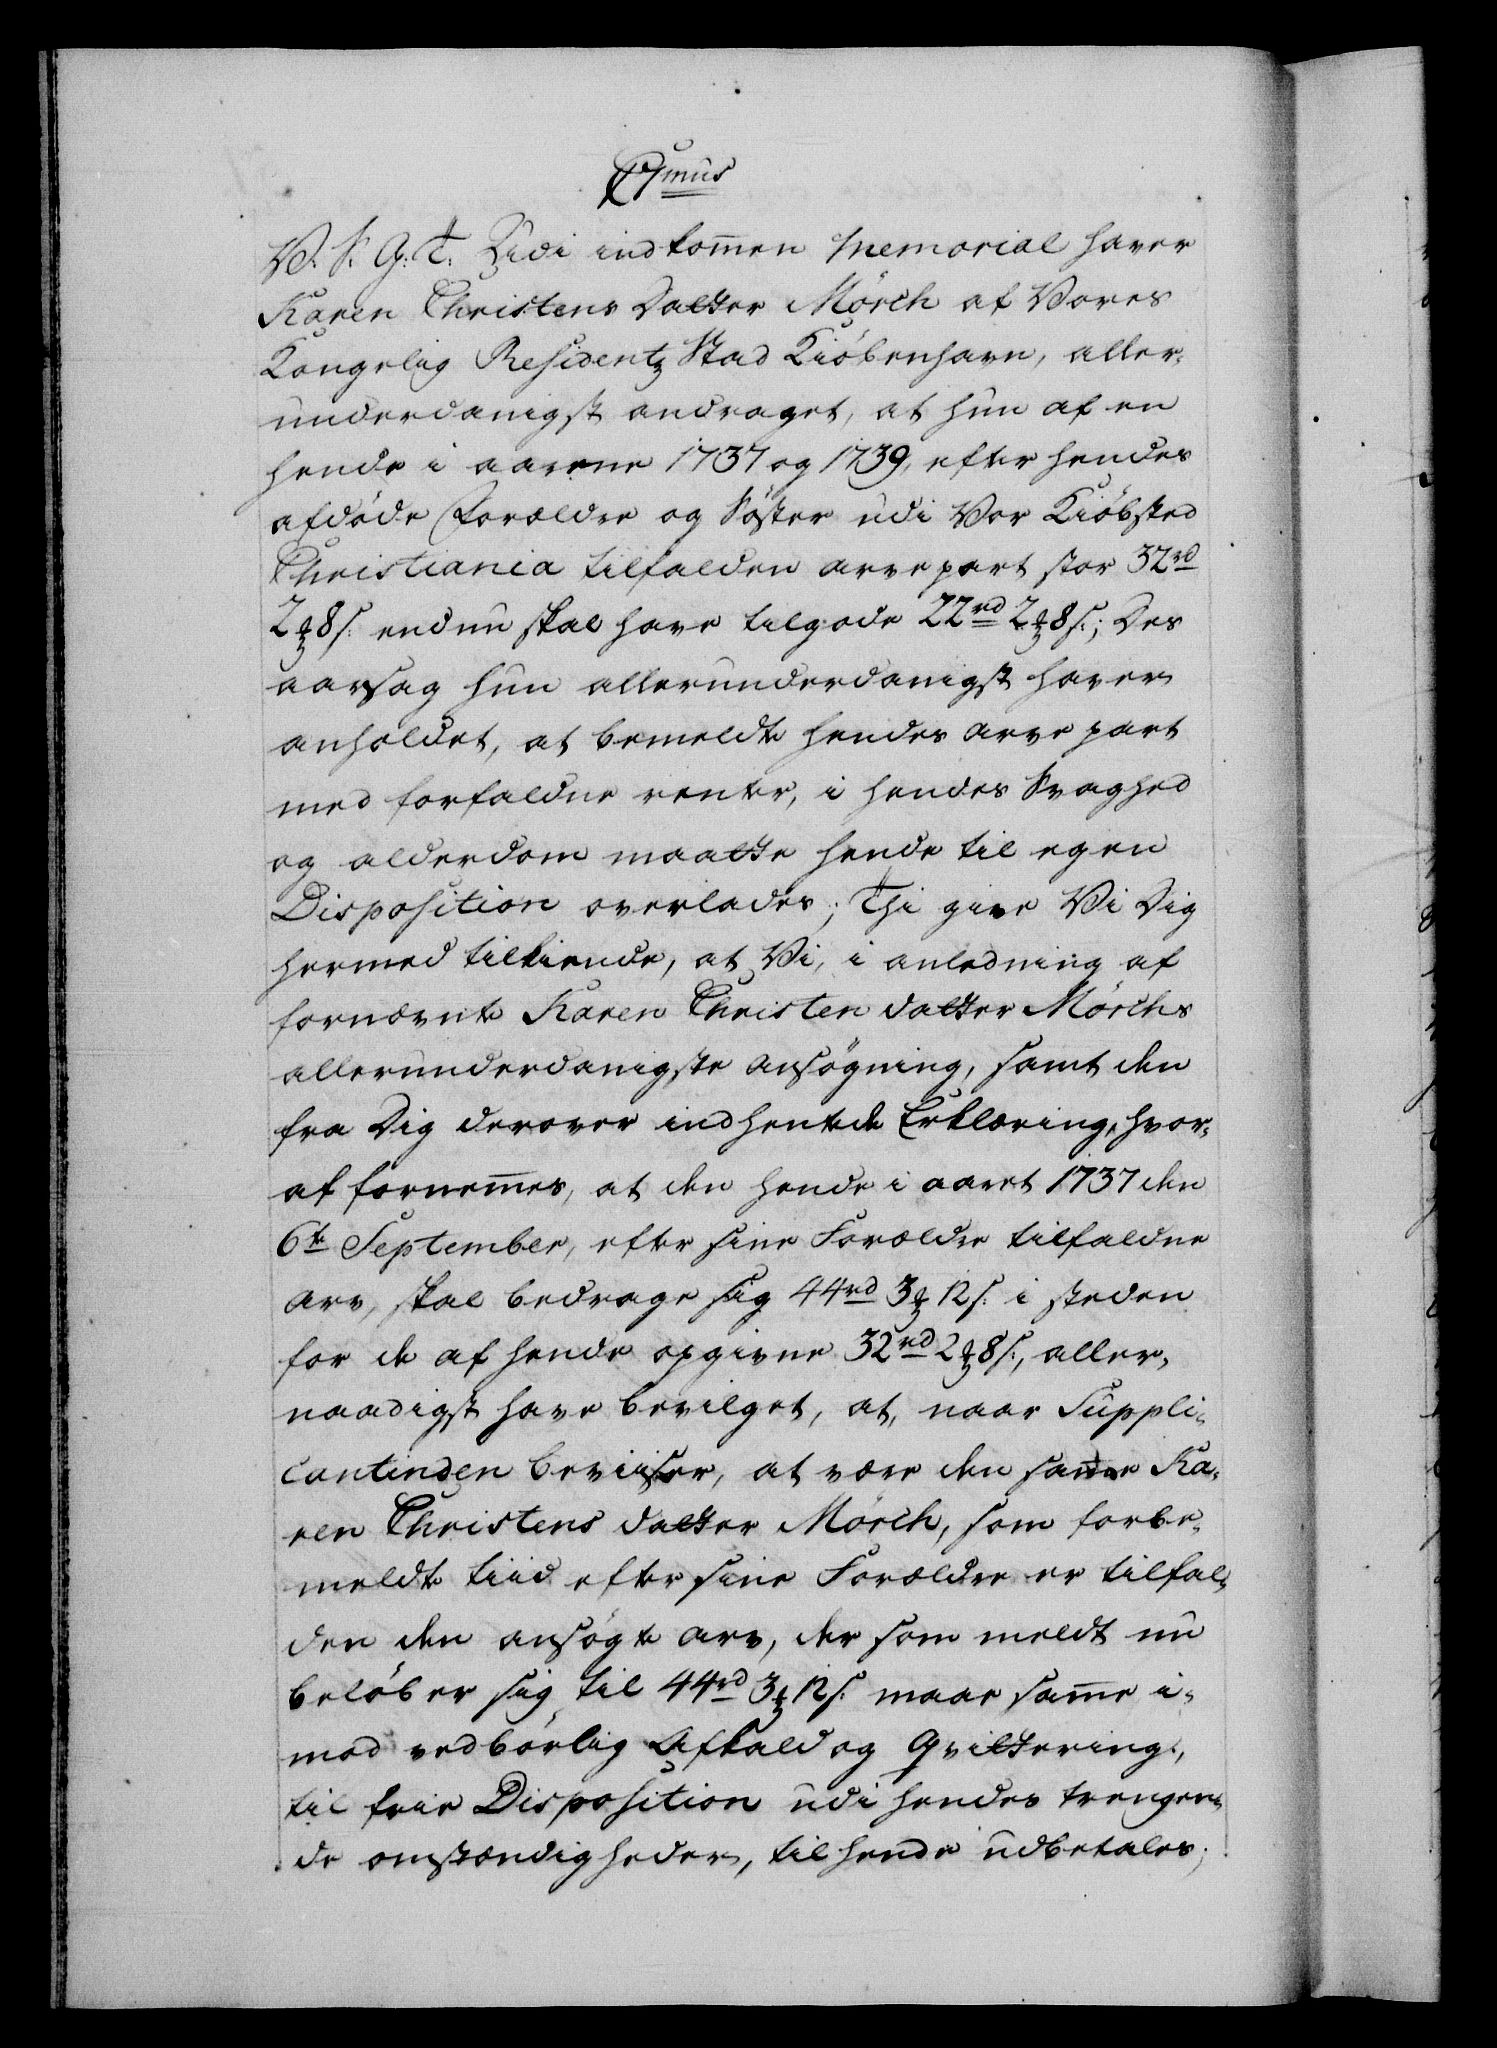 C7mus
V. S. G. T. Udi indkom̄en Memorial haver
Karen Christens Datter Mörch af Vores
Kongelig Residentz Stad Kiöbenhavn, aller-
underdanigst andraget, at hun af en
hende i aarene 1737 og 1739, efter hendes
afdöde Forældre og Söster udi Vor Kiöbsted
Christiania tilfalden arvepart stor 32rd
2 ₰ 8 s. endnu skal have tilgode 22rd 2 ₰ 8 s.; Des
aarsag hun allerunderdanigst haver
anholdet, at bemeldte hendes arve part
med forfaldne renter, i hendes Svaghed
og alderdom maatte hende til egen
Disposition overlades; Thi give Vi Dig
hermed tilkiende, at Vi, i anledning af
fornævnte Karen Christen datter Mörchs
allerunderdanigste ansögning, samt den
fra Dig derover indhentede Erklæring, hvor-
af fornem̄es, at den hende i aaret 1737 den
6te September, efter sine Forældre tilfaldne
arv, skal bedrage sig 44rd 3 ₰ 12 s. i steden
for de af hende opgivne 32rd 2 ₰ 8 s., aller-
naadigst have bevilget, at, naar Suppli-
cantinden beviiser, at være den sande Ka-
ren Christens datter Mörch, som forbe-
meldte tiid efter sine Forældre er tilfal-
den den ansögte arv, der som meldt nu
belöber sig til 44rd 3 ₰ 12 s. maae sam̄e i-
mod vedbörlig Afkald og Qvittering,
til frie Disposition udi hendes trengen-
de omstændigheder, til hende udbetales;